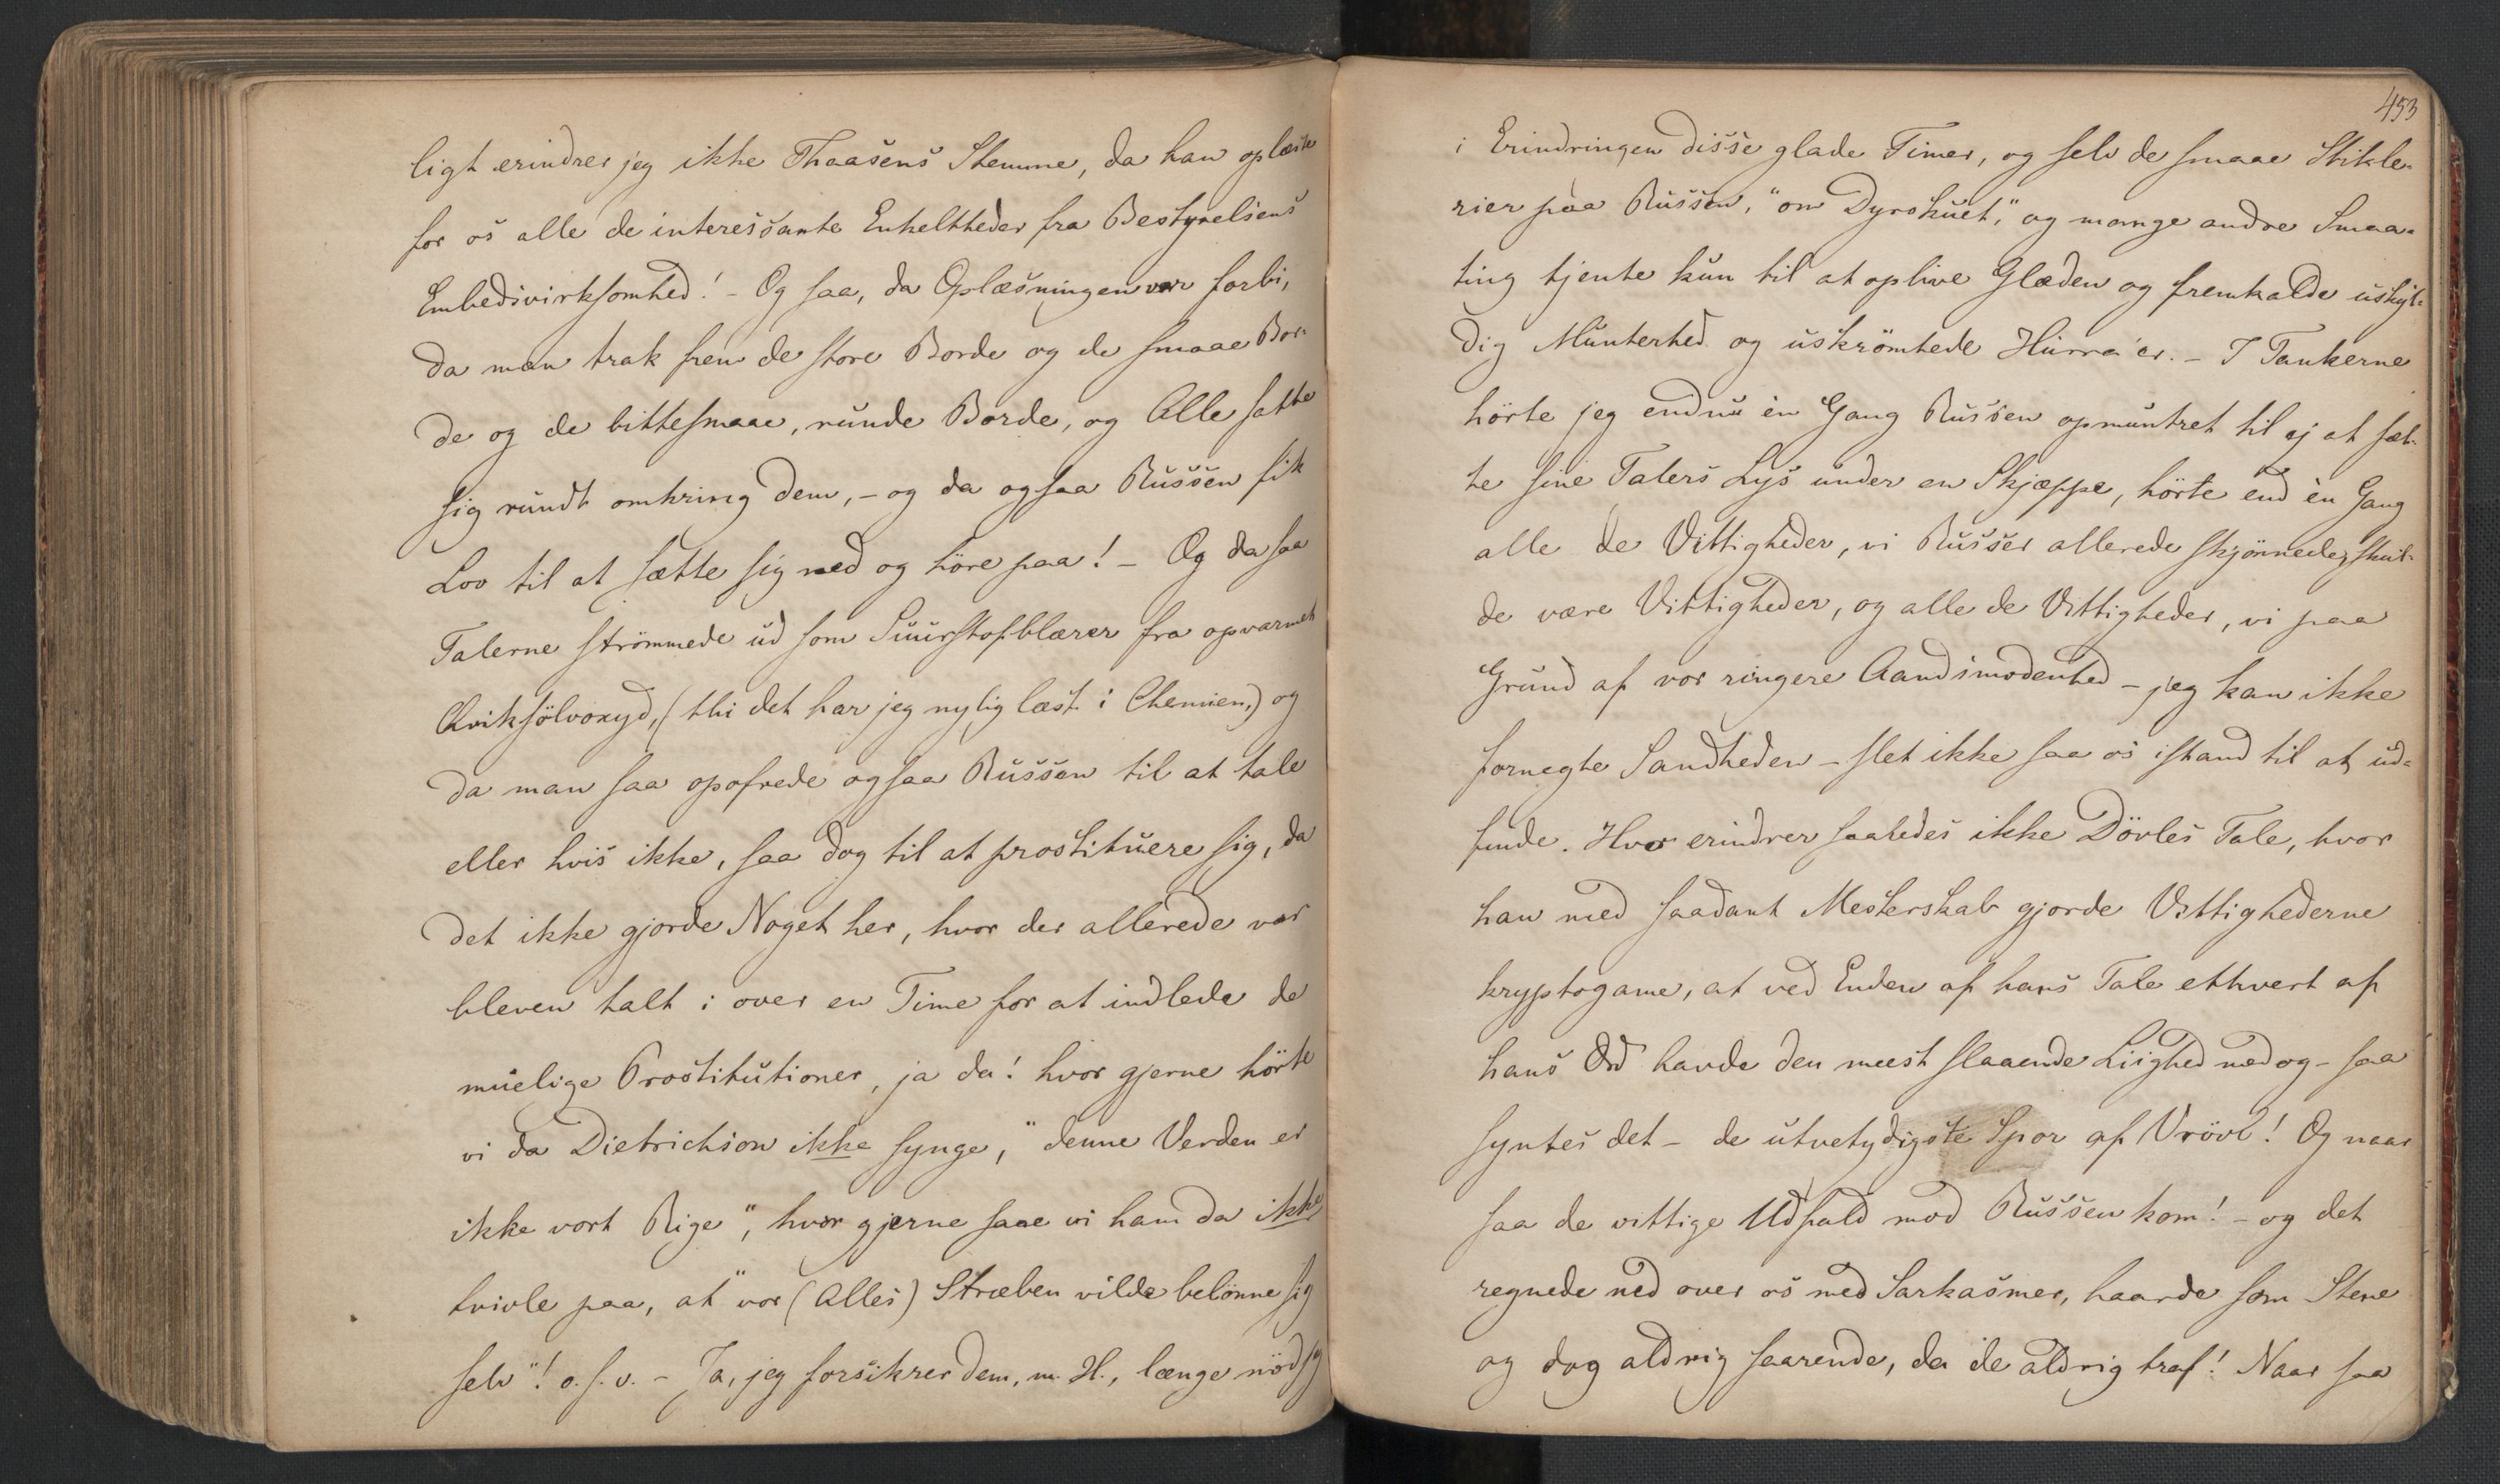 ligt erindrer jeg ikke Thaasens Stemme, da han oplæste
for os alle de interessante Enkeltheder fra Bestyrelsens
Embedsvirksomhed! – Og saa, da Oplæsningen var forbi,
da man trak frem de store Borde og de smaae Bor-
de og de bittesmaae, runde Borde, og Alle satte
sig rundt omkring dem, – og da ogsaa Russen fik
Lov til at sætte sig ned og höre paa! – Og da saa
Talerne strömmede ud som Suurstofblærer fra opvarmet
Kviksölvoxyd, (thi det har jeg nylig læst i Chemien,) og
da man saa opofrede ogsaa Russen til at tale
eller hvis ikke, saa dog til at prostituere sig, da
det ikke gjorde Noget her, hvor der allerede var
bleven talt i over en Time for at indlede de
muelige Prostitutioner, ja da! hvor gjerne hörte
vi da Dietrichson ikke synge, "denne Verden er
ikke vort Rige", hvor gjerne saae vi ham da ikke
tvivle paa, at "vor (Alles) Stræben vilde belönne sig
selv"! o.s.v. – Ja, jeg forsikrer dem, m. H., længe nöd jeg
453
i Erindringen disse glade Timer, og selv de smaae Stikle-
rier paa Russen, "om Dyrskuet," og mange andre Smaa-
ting tjente kun til at oplive Glæden og fremkalde uskyl-
dig Munterhed og uskrömtede Hurra'er. – I Tankerne
hörte jeg endnu èn Gang Russen opmuntret til ej at sæt-
te sine Talers Lys under en Skjæppe, hörte end èn Gang
alle de Vittigheder, vi Russer allerede skjönnede, skul-
de være Vittigheder, og alle de Vittigheder, vi paa
Grund af vor ringere Aandsmodenhed – jeg kan ikke
fornegte Sandheden – slet ikke saa os istand til at ud-
finde. Hvo erindrer saaledes ikke Dövles Tale, hvor
han med saadant Mesterskab gjorde Vittighederne
kryptogame, at ved Enden af hans Tale ethvert af
hans Ord havde den meest slaaende Liighed med og – saa
syntes det – de utvetydigste Spor af Vrövl! Og naar
saa de vittige Udfald mod Russen kom! – og det
regnede ned over os med Sarkasmer, haarde som Stene
og dog aldrig saarende, da de aldrig traf! Naar saa